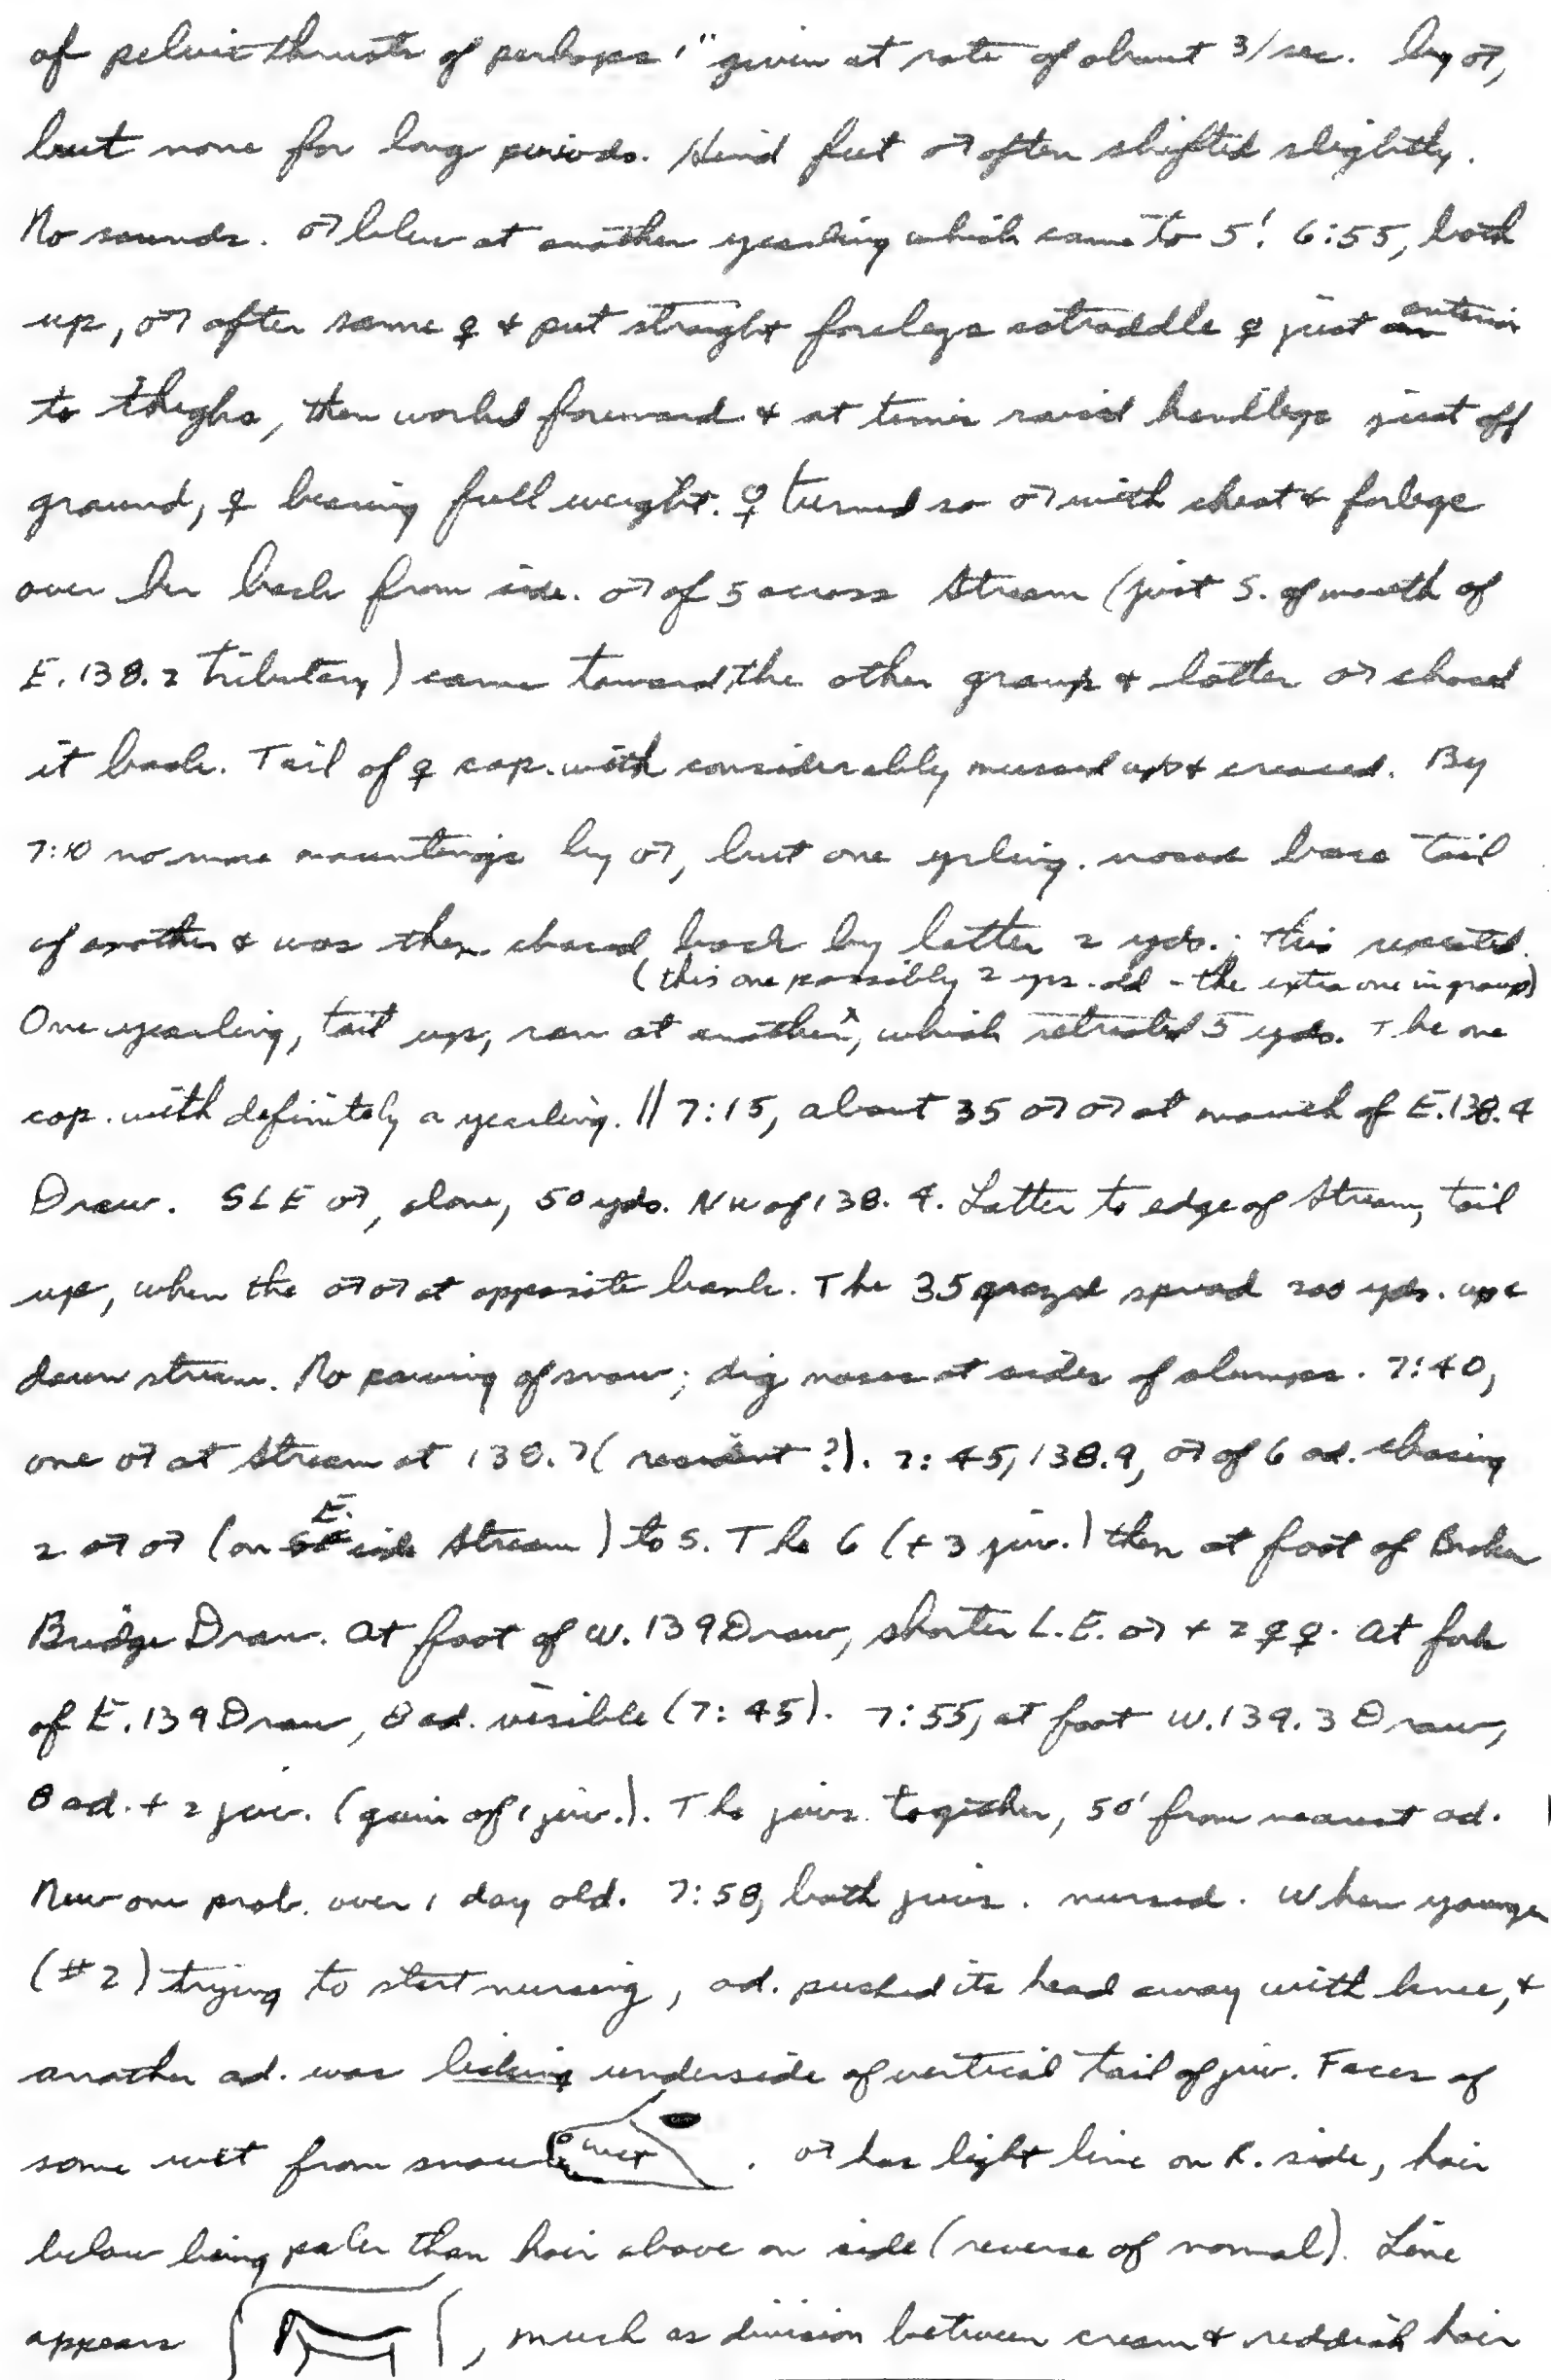 of pelvic thrusts of perhaps 1" given at rate of about 3/sec. by ♂,
but none for long periods. Hind feet ♂ often shifted slightly.
No sounds. ♂ blew at another yearling which came to 5'. 6:55, both
up, ♂ after same ♀ & put straight forelegs astraddle ♀ just anterior
to thighs, then worked forward & at times raised hindlegs just off
ground, ♀ bearing full weight. ♀ turned so ♂ with chest & forlegs
over her back from side. ♂ of 5 across Stream (just S. of mouth of
E. 138.2 tributary) came toward the other group & latter ♂ chased
it back. Tail of ♀ cop. with considerably mussed up & creased. By
7:10 no more mountings by ♂, but one yrling. nosed base tail
of another & was then chased back by latter 2 yds.; this repeated.
(this one possibly 2 yrs. old - the extra one in group)
One yearling, tail up, ran at another, which retreated 5 yds. The one
cop. with definitely a yearling. || 7:15, about 35 ♂♂ at mouth of E. 138.4
Draw. SLE ♂, alone, 50 yds. NW of 138.4. Latter to edge of Stream, tail
up, when the ♂♂ at opposite bank. The 35 grazed spread 200 yds. up &
down stream. No pawing of snow; dig noses at sides of clumps. 7:40,
one ♂ at Stream at 138.7 (resident?). 7:45, 138.9, ♂ of 6 ad. chasing
2 ♂♂ (on E. side Stream) to S. The 6 (+ 3 juv.) then at foot of Broken
Bridge Draw. At foot of W. 139 Draw, shorter L.E. ♂ + 2 ♀♀. At fork
of E. 139 Draw, 8 ad. visible (7:45). 7:55, at foot W. 139.3 Draw,
8 ad. + 2 juv. (gain of 1 juv.). The juvs. together, 50' from nearest ad.
New one prob. over 1 day old. 7:58, both juvs. nursed. When younger
(#2) trying to start nursing, ad. pushed its head away with knee, &
another ad. was licking underside of vertical tail of juv. Faces of
some wet from snow wet. ♂ has light line on R. side, hair
below being paler than hair above on side (reverse of normal). Line
appears, much as division between cream & reddish hair